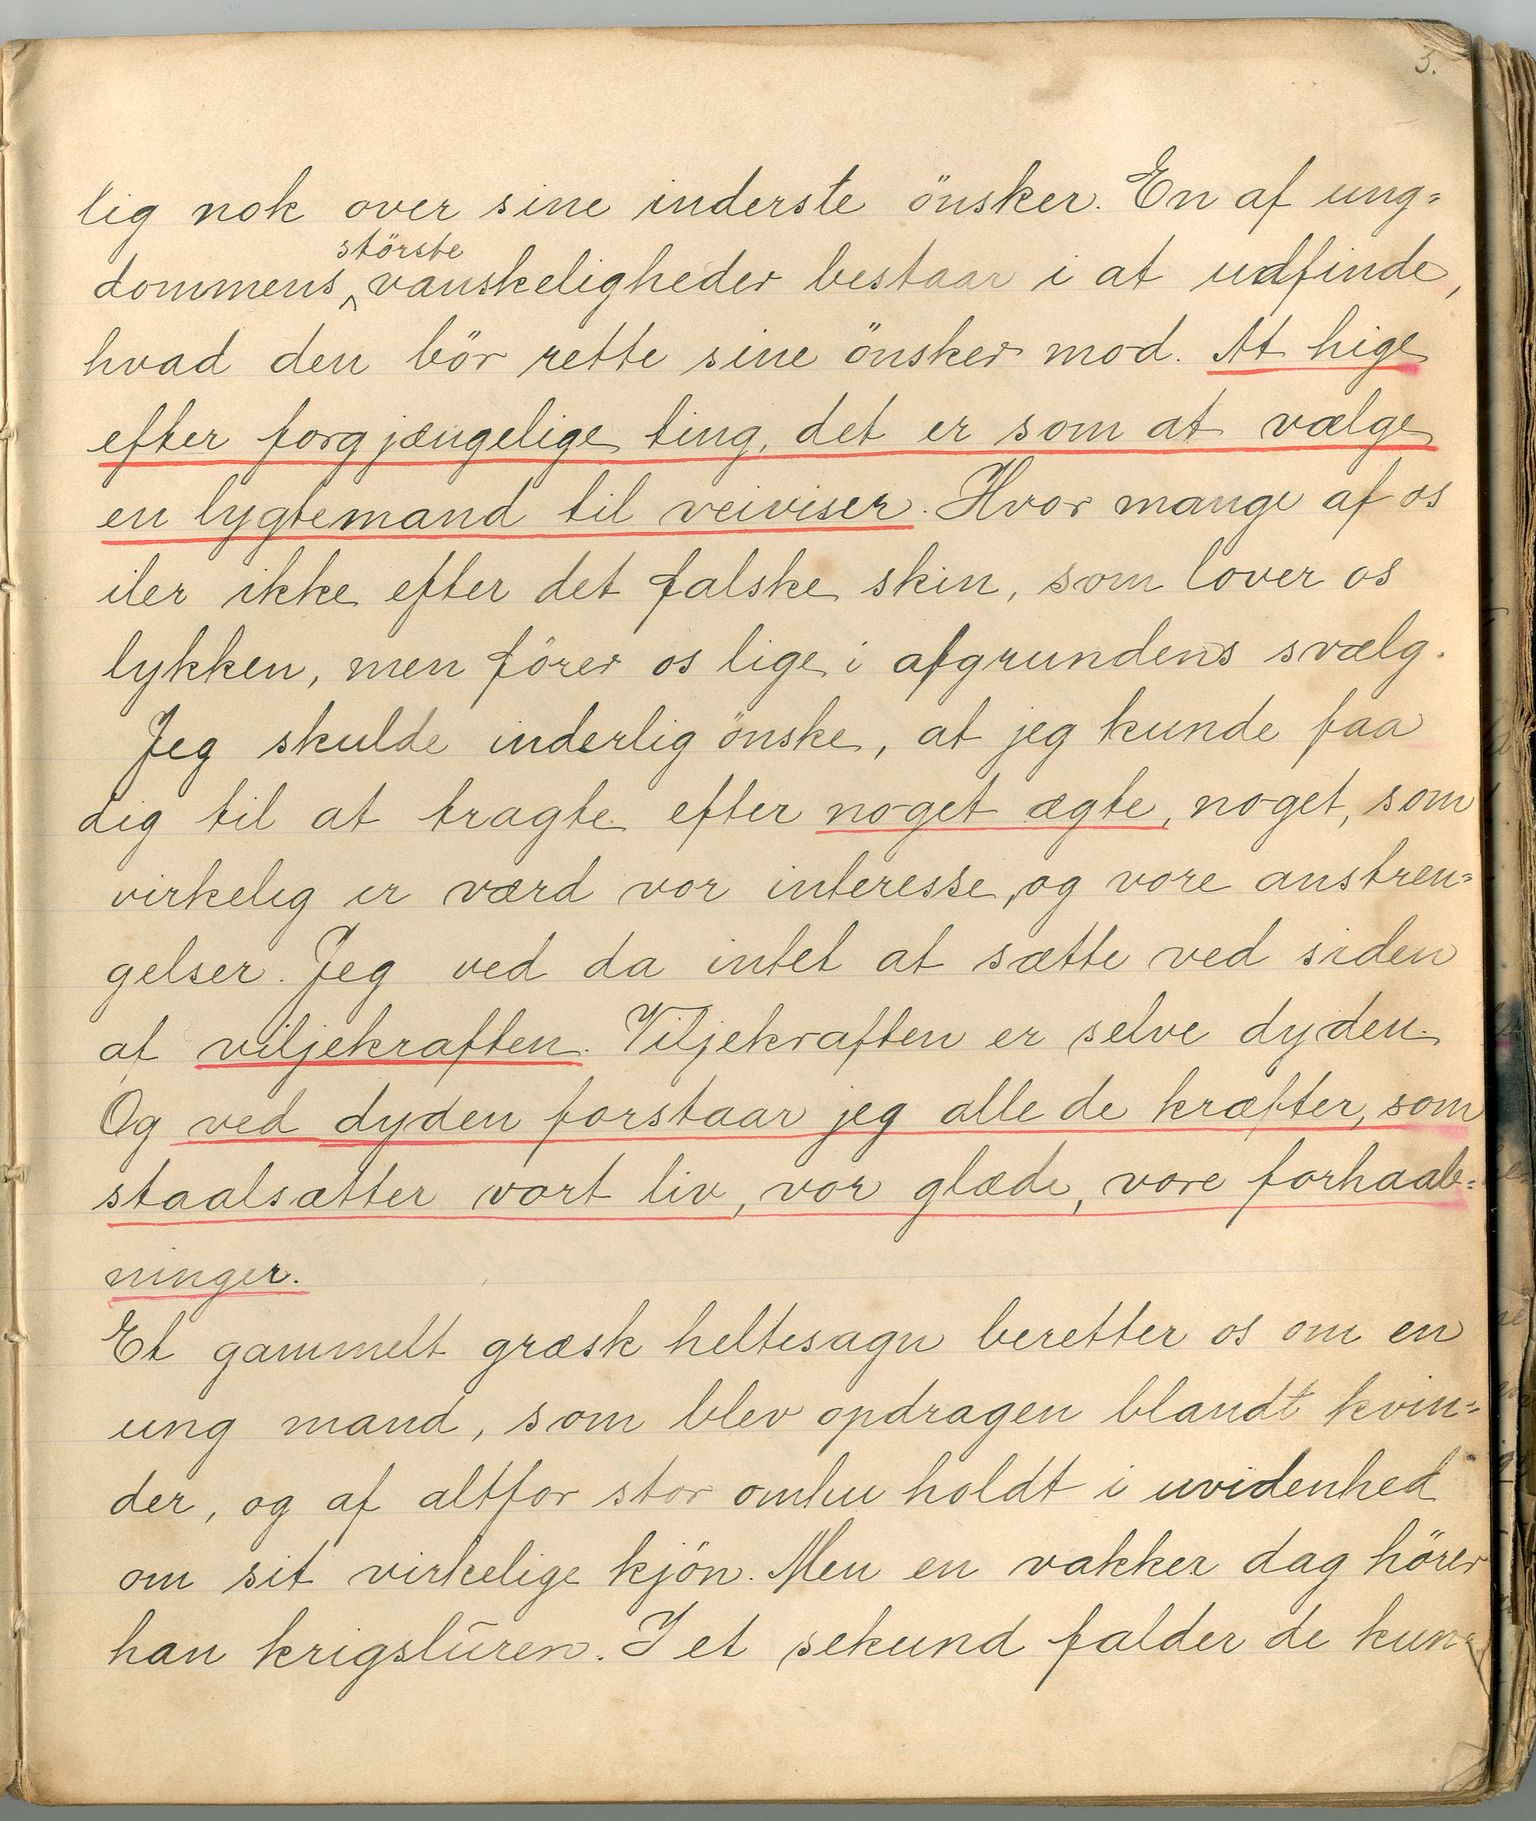 5.
lig nok over sine inderste önsker. En af ung=
störste
dommens vanskeligheder bestaar i at udfinde,
hvad den bör rette sine önsker mod. At hige
efter forgjængelige ting, det er som at vælge
en lygtemand til veiviser. Hvor mange af os
iler ikke efter det falske skin, som lover os
lykken, men förer os lige i afgrundens svælg.
Jeg skulde inderlig önske, at jeg kunde faa
dig til at tragte efter noget ægte, noget, som
virkelig er værd vor interesse, og vore anstren=
gelser. Jeg ved da intet at sætte ved siden
af viljekraften. Viljekraften er selve dyden.
Og ved dyden forstaar jeg alle de kræfter, som
staalsætter vort liv, vor glæde, vore forhaab=
ninger.
Et gammelt græsk heltesagn beretter os om en
ung mand, som blev opdragen blandt kvin=
der, og af altfor stor omhu holdt i uvidenhed
om sit virkelige kjön. Men en vakker dag hörer
han krigslūren. I et sekund falder de kun=